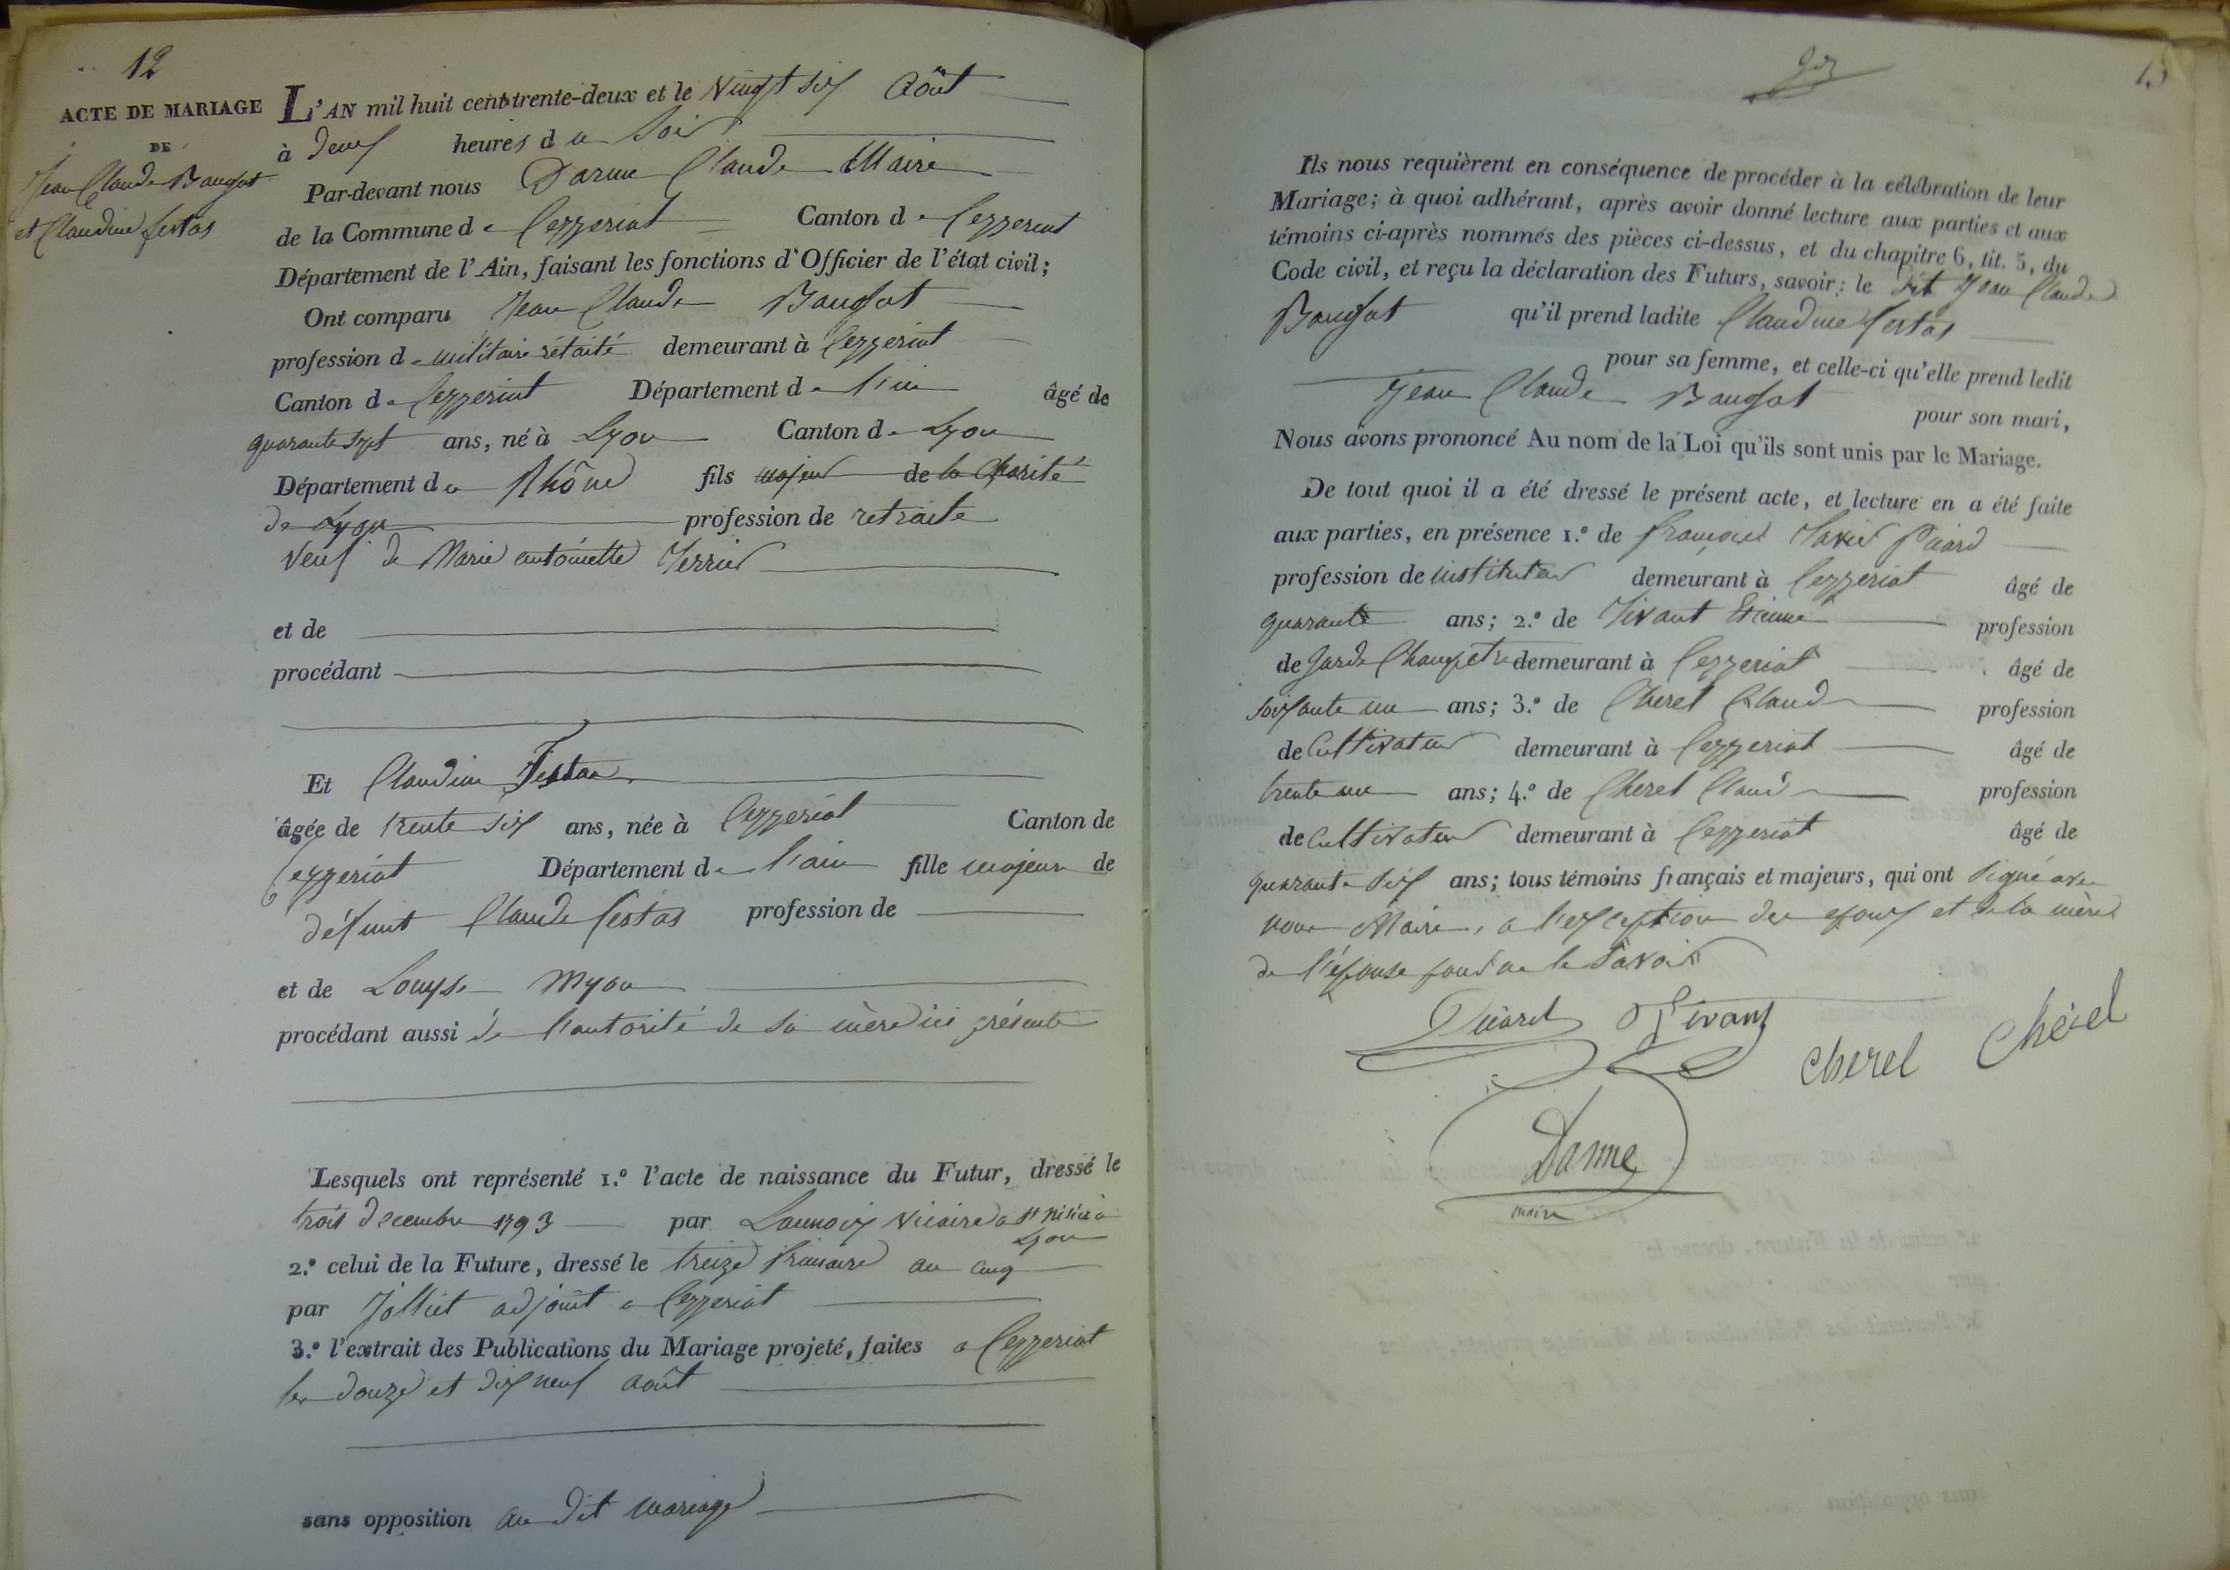 12
ACTE DE MARIAGE
DE
Jean Claude Baugat
et Claudine festas
L'AN mil huit cent trente-deux et le Vingt six Août
à deux heures du Soir
Par-devant nous Darme Claude Maire
de la Commune de Ceyzeriat Canton de Ceyzeriat
Département de l'Ain, faisant les fonctions d'Officier de l'état civil;
Ont comparu Jean Claude
profession de militaire retraité demeurant à Ceyzeriat
Canton de Ceyzeriat Département de l'ain âgé de
quarante sept ans, né à Lyon Canton de Lyon
Département du Rhône fils majeur de la Charité
de Lyon profession de retraite
veuf de Marie antoinette
et de
procédant
Et Claudine Festas
âgée de trente six ans, née à Ceyzeriat Canton de
Ceyzeriat Département de l'ain fille majeure de
défunt Claude festas profession de
et de Louyse Myon
procédant aussi de l'autorité de sa mère ici présente
Lesquels ont représenté 1.º l'acte de naissance du Futur, dressé le
trois decembre 1793 par vicaire a St Nisier a
Lyon
2.º celui de la Future, dressé le treize frimaire an cinq
par Jolliet adjoint a Ceyzeriat
3.º l'extrait des Publications du Mariage projeté, faites a Ceyzeriat
les douze et dix neuf août
sans opposition au dit mariage
15
Ils nous requièrent en conséquence de procéder à la célébration de leur
Mariage; à quoi adhérant, après avoir donné lecture aux parties et aux
témoins ci-après nommés des pièces ci-dessus, et du chapitre 6, tit. 5, du
Code civil, et reçu la déclaration des Futurs, savoir: le dit Jean Claude
qu'il prend ladite Claudine festas
pour sa femme, et celle-ci qu'elle prend ledit
Jean Claude
pour son mari,
Nous avons prononcé Au nom de la Loi qu'ils sont unis par le Mariage.
De tout quoi il a été dressé le présent acte, et lecture en a été faite
aux parties, en présence 1.º de françois Xavier
profession de instituteur demeurant à Ceyzeriat âgé de
quarante ans; 2.º de Vivant Etienne profession
de garde Champetre demeurant à Ceyzeriat âgé de
soixante un ans; 3.º de Cherel Claude profession
de Cultivateur demeurant à Ceyzeriat âgé de
trente un ans; 4.º de Cherel Claude profession
de Cultivateur demeurant à Ceyzeriat âgé de
quarante six ans; tous témoins français et majeurs, qui ont signé avec
nous Maire, a l'exception des epoux et de la mère
de l'épouse pour ne le savoir
Vivant
Cherel Cherel
Darme
maire